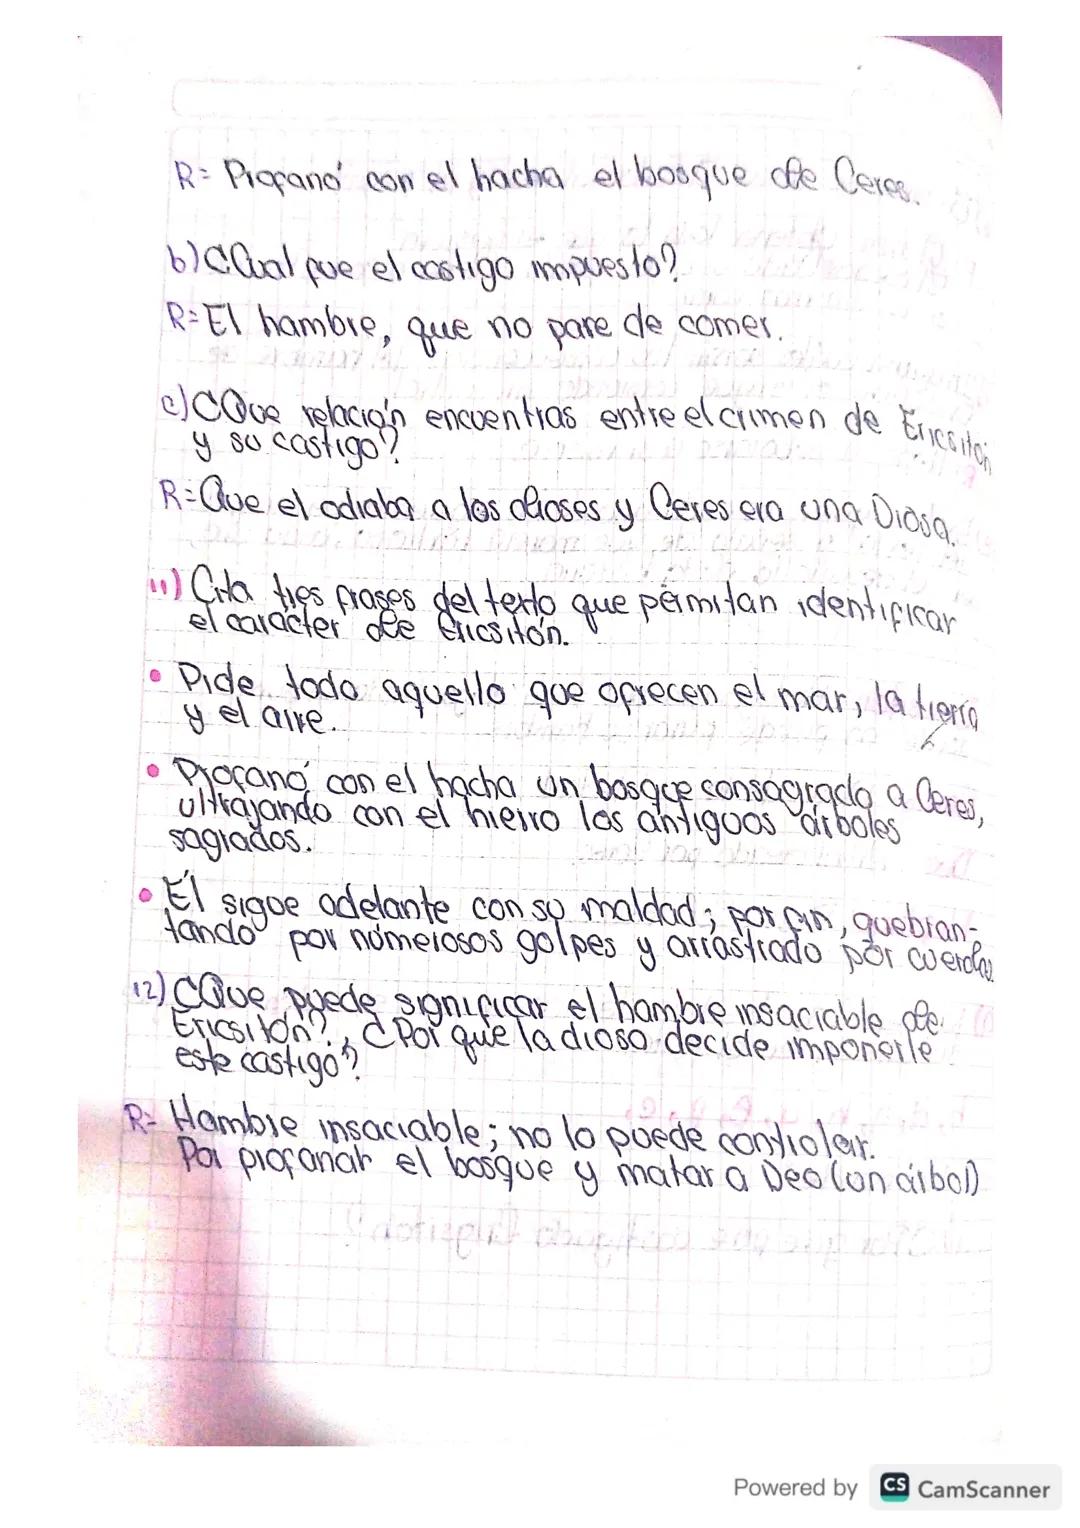 R= Profanó con el hacha el bosque de Ceres.
b) ¿Cual fue el castigo impuesto?
R= El hambre, que no pare de comer.
c) ¿Que relación encuentras entre el crimen de Ericsitón
y su castigo?
R= Que el odiaba a los dioses y Ceres era una Diosa.
11) Cita tres frases del texto que permitan identificar
el carácter de Ericsitón.
• Pide todo aquello que ofrecen el mar, la tierra
y el aire.
• Profanó con el hacha un bosque consagrado a Ceres,
ultrajando con el hierro los antiguos árboles
sagrados.
• Él sigue adelante con su maldad; por fin, quebran-
tando por númerosos golpes y arrastrado por cuerdas
12) ¿Que puede significar el hambre insaciable de
Ericsitón?, ¿Por que la diosa decide imponerle
este castigo?
R= Hambre insaciable; no lo puede controlar.
Por profanar el bosque y matar a Deo (un árbol)
Powered by CS CamScanner